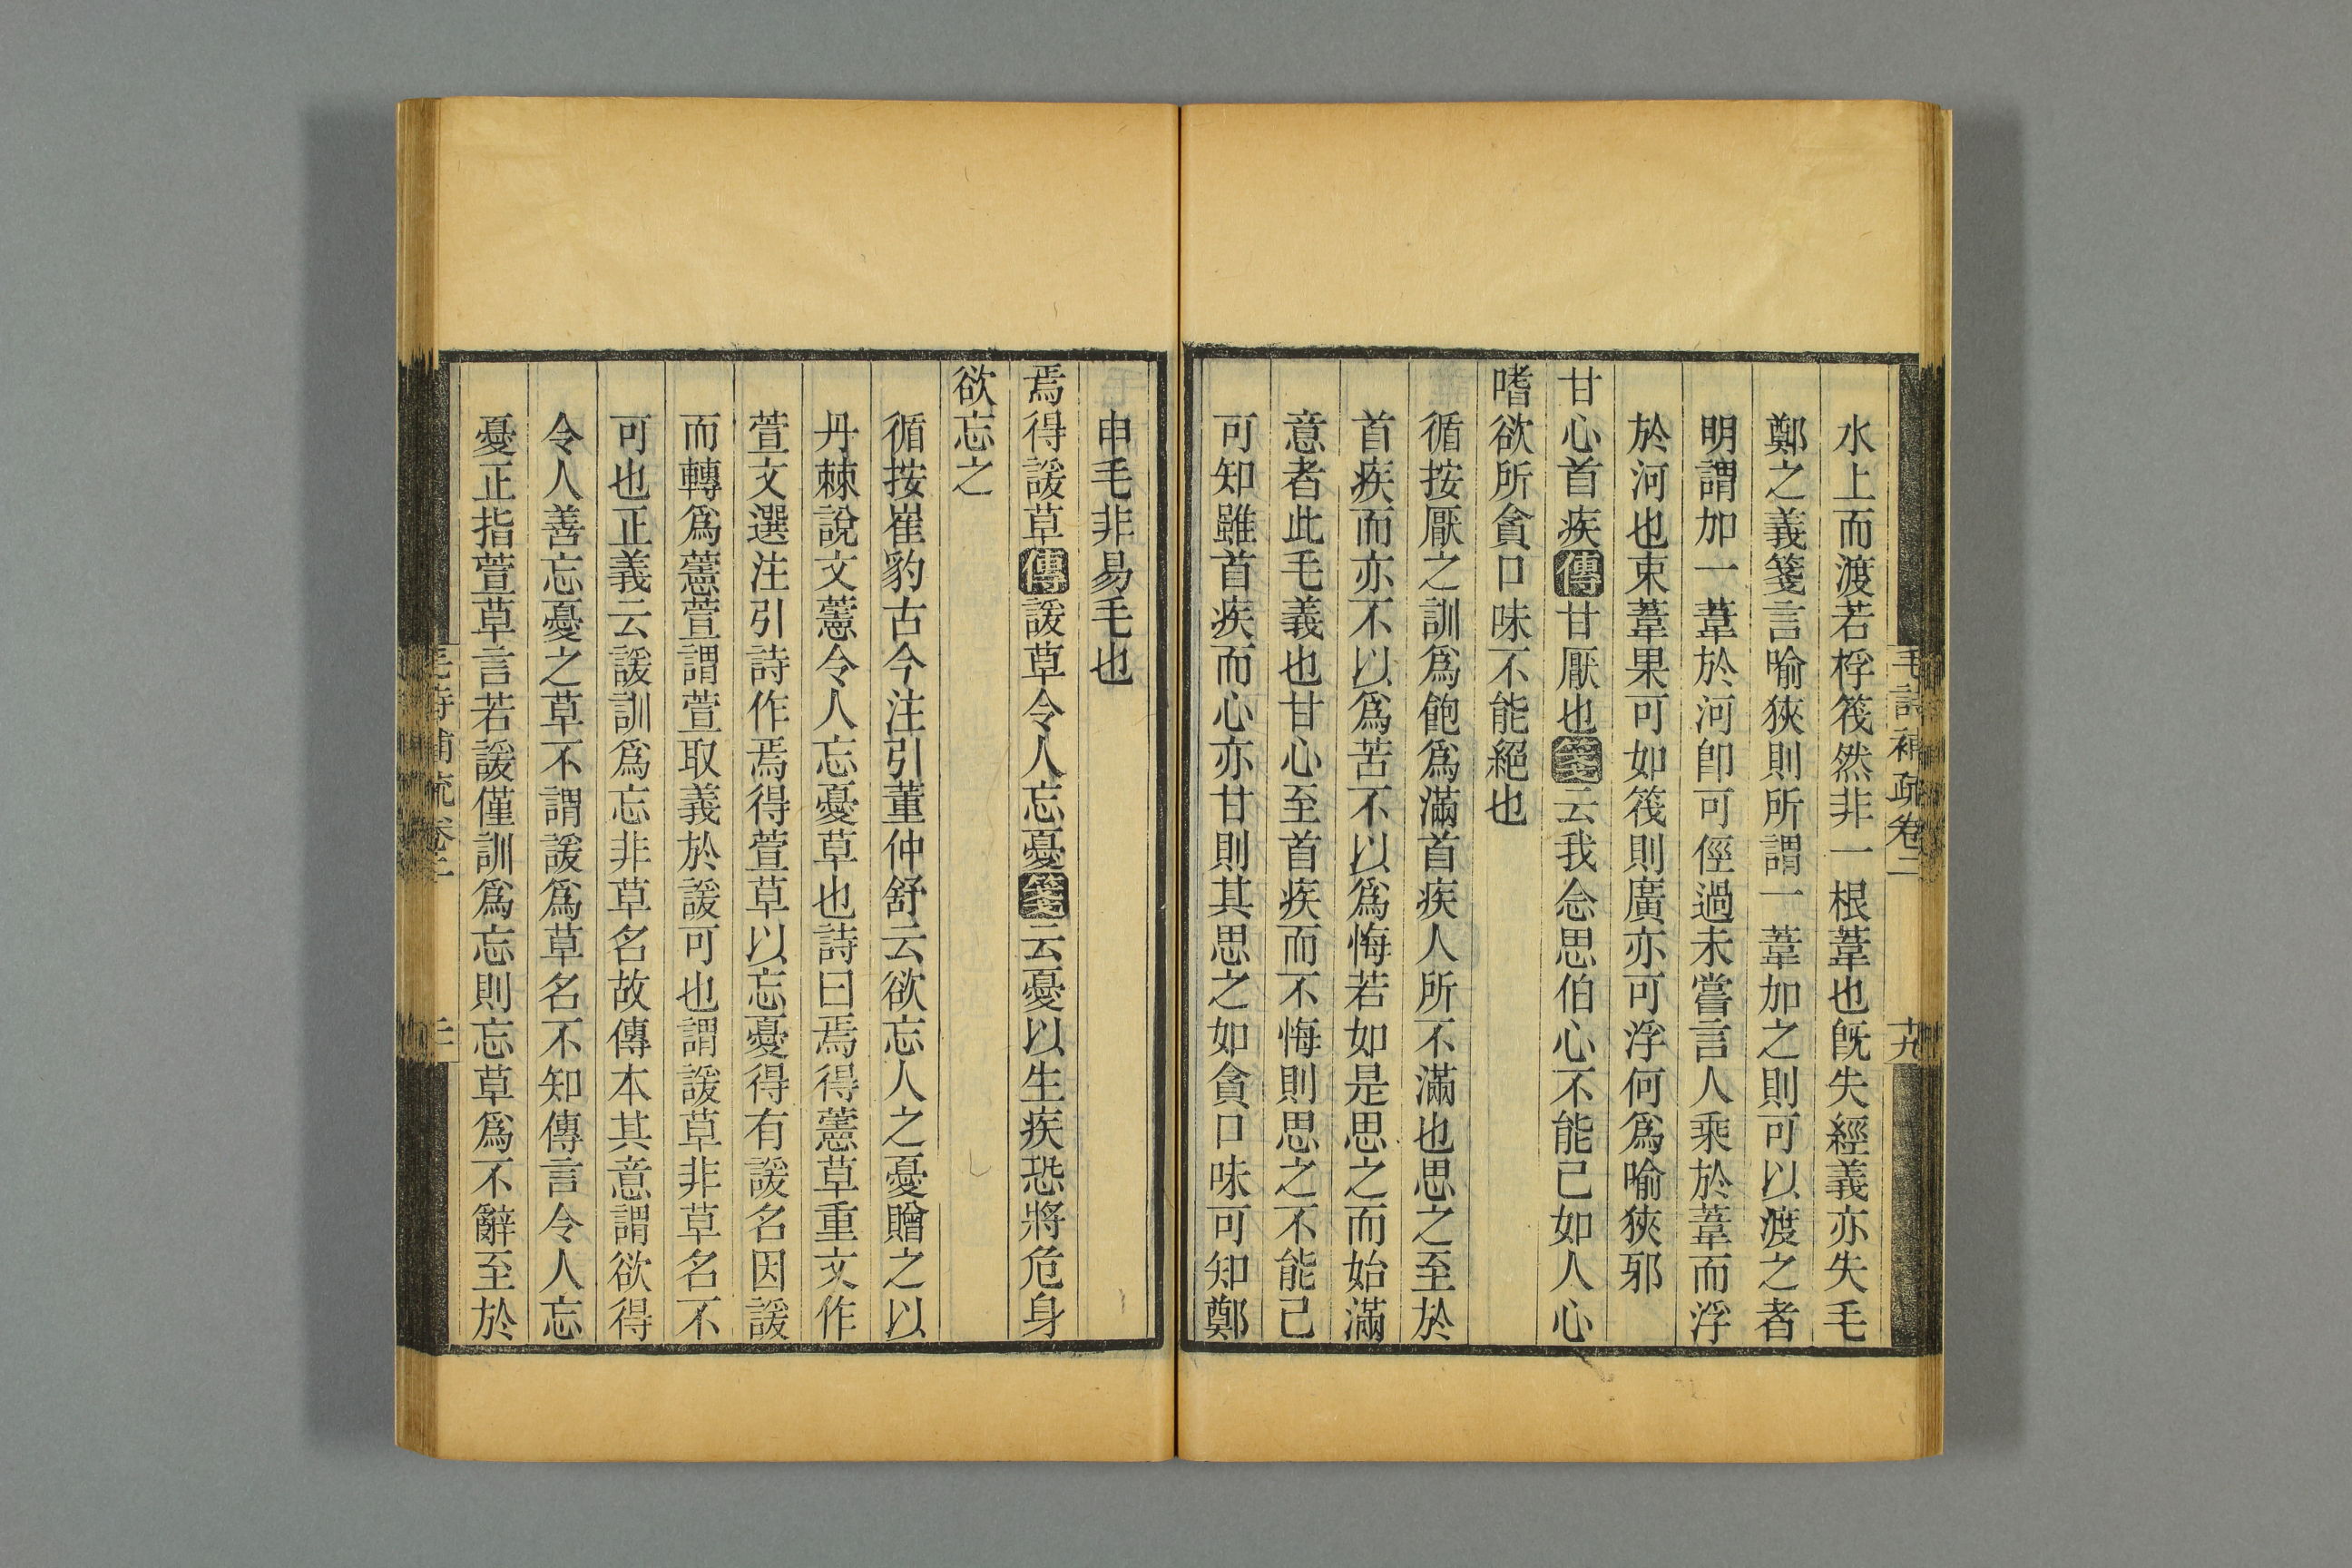 毛詩補疏卷二 十九
水上而渡若桴筏然非一根葦也旣失經義亦失毛
鄭之義箋言喻狹則所謂一葦加之則可以渡之者
明謂加一葦於河卽可徑過未嘗言人乘於葦而浮
於河也束葦果可如筏則廣亦可浮何爲喻狹邪
甘心首疾傳甘厭也箋云我念思伯心不能已如人心
嗜欲所貪口味不能絕也
循按厭之訓爲飽爲滿首疾人所不滿也思之至於
首疾而亦不以爲苦不以爲悔若如是思之而始滿
意者此毛義也甘心至首疾而不悔則思之不能已
可知雖首疾而心亦甘則其思之如貪口味可知鄭
申毛非易毛也
焉得諼草傳諼草令人忘憂箋云憂以生疾恐將危身
欲忘之
循按崔豹古今注引董仲舒云欲忘人之憂贈之以
丹棘說文藼令人忘憂草也詩曰焉得藼草重文作
萱文選注引詩作焉得萱草以忘憂得有諼名因諼
而轉爲藼萱謂萱取義於諼可也謂諼草非草名不
可也正義云諼訓爲忘非草名故傳本其意謂欲得
令人善忘憂之草不謂諼爲草名不知傳言令人忘
憂正指萱草言若諼僅訓爲忘則忘草爲不辭至於
毛詩補疏卷二 二十